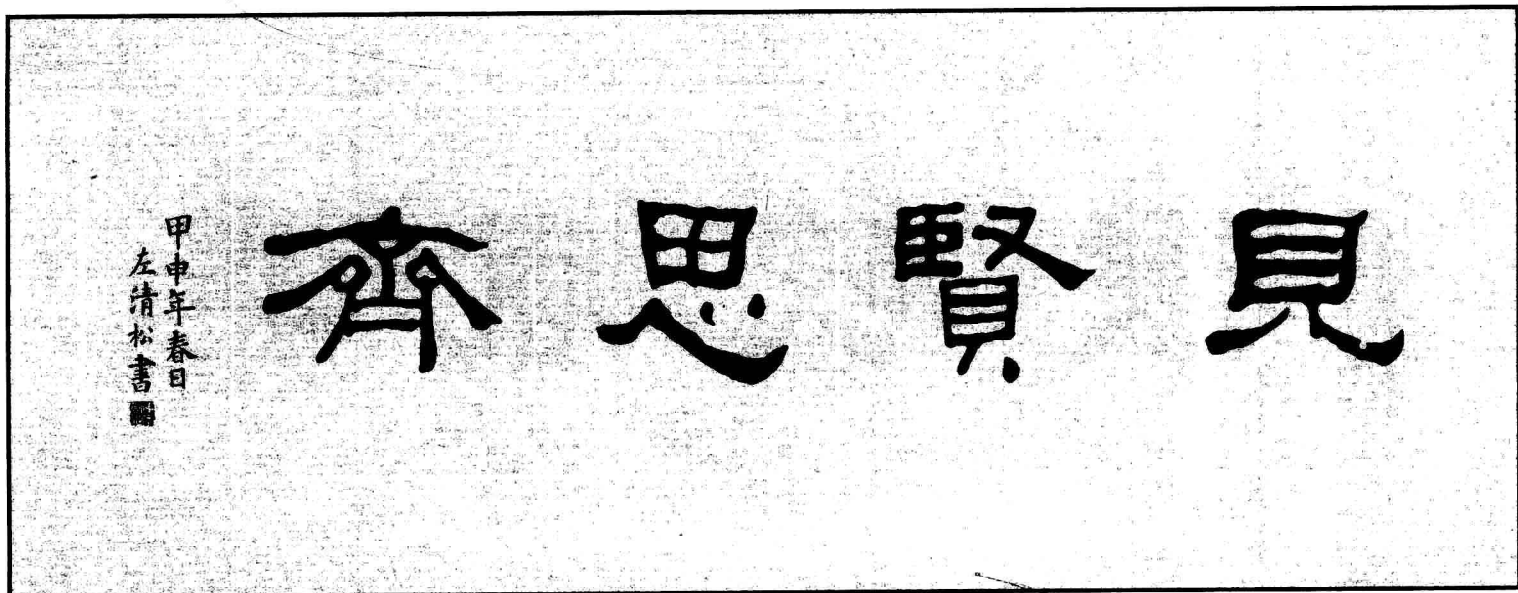 見賢思齊
甲申年春日
左清松書